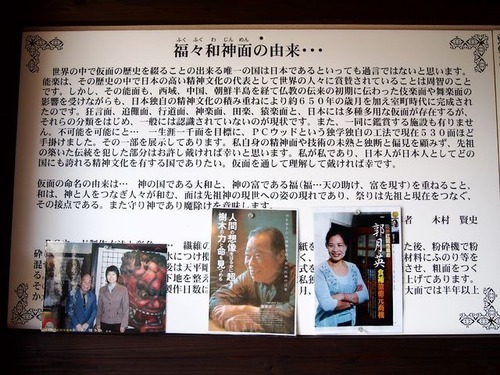 ふくふくわじんめん
福々和神面の由来・・・
世界の中で仮面の歴史を綴ることの出来る唯一の国は日本であるといっても過言ではないと思います。
能楽は、その歴史の中で日本の高い精神文化の代表として世界の人々に賞賛されていることは周智のこと
です。しかし、その能面も、西域、中国、朝鮮半島を経て仏教の伝来の初期に伝わった伎楽面や舞楽面の
影響を受けながらも、日本独自の精神文化の積み重ねにより約６５０年の歳月を加え室町時代に完成され
たのです。狂言面、追儺面、行道面、神楽面、田楽、猿楽面と、日本には多種多用な仮面が存在するが、
それらの分類をはじめ、一般には認識されていないのが現状です。また、一同に鑑賞する施設も有りませ
ん。不可能を可能にと… 一生涯一千面を目標に、ＰＣウッドという独学独自の工法で現在５３０面ほど
手掛けました。その一部を展示してあります。私自身の精神面や技術の未熟と独断と偏見を顧みず、先祖
の築いた伝統を犯した部分はお許し戴ければ幸いと思います。私が私であり、日本人が日本人としてどの
国にも誇れる精神文化を有する国でありたい。仮面を通して理解して戴ければ幸です。
仮面の命名の由来は… 神の国である大和と、神の富である福（福…天の助け、富を現す）を重ねること、
和は、神と人をつなぎ人々が和む、面は先祖神の現世への姿の現れであり、祭りは先祖と現在をつなぐ、
その接点である。また守り神であり魔除けを意味します。
者 木村 賢史
繊維の
紙を
た後、粉砕機で粉
砕
につけ
材料にふのり等を
混
後は天
させ、粗面をつく
る
下地を
上げてあります。
そ
製作日数に
大面では半年以上
人間の想像をはるかに超えた
樹木の力と命を見つめる
郭月英